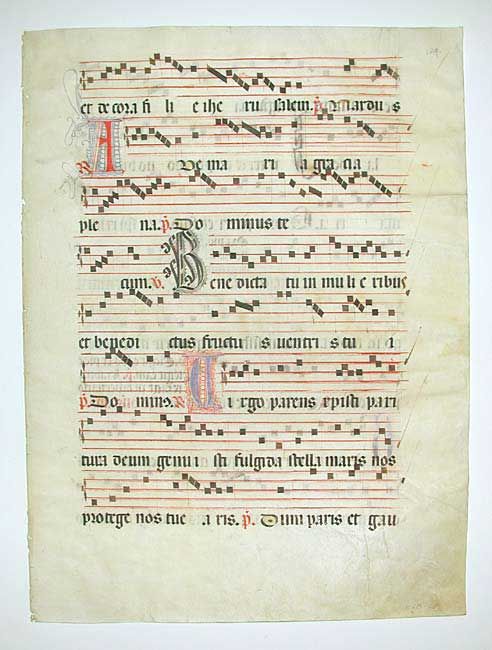 et decora fi li e ihe ru salem. p. Nardus
R. A ve ma ri a gracia
ple na. p. Do minus te
cum. v. Bene dicta tu in muli e ribus
et benedi ctus fructu s ventri s tu i
p. Do minus. R. Virgo parens xpisti pari
tura deum genui sti fulgida stella maris nos
protege nos tue a ris. p. Dum paris et gau